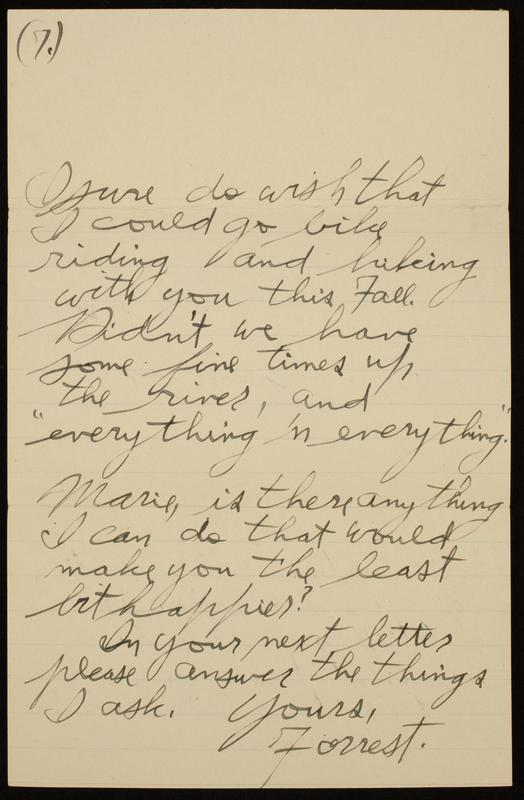 (7.)
I sure do wish that
I could go bike
riding and hiking
with you this Fall.
Didn't we have
some fine times up
the river, and
"everything 'n everything."
Marie, is there anything
I can do that would
make you the least
bit happier?
In your next letter
please answer the things
I ask. Yours,
Forrest.